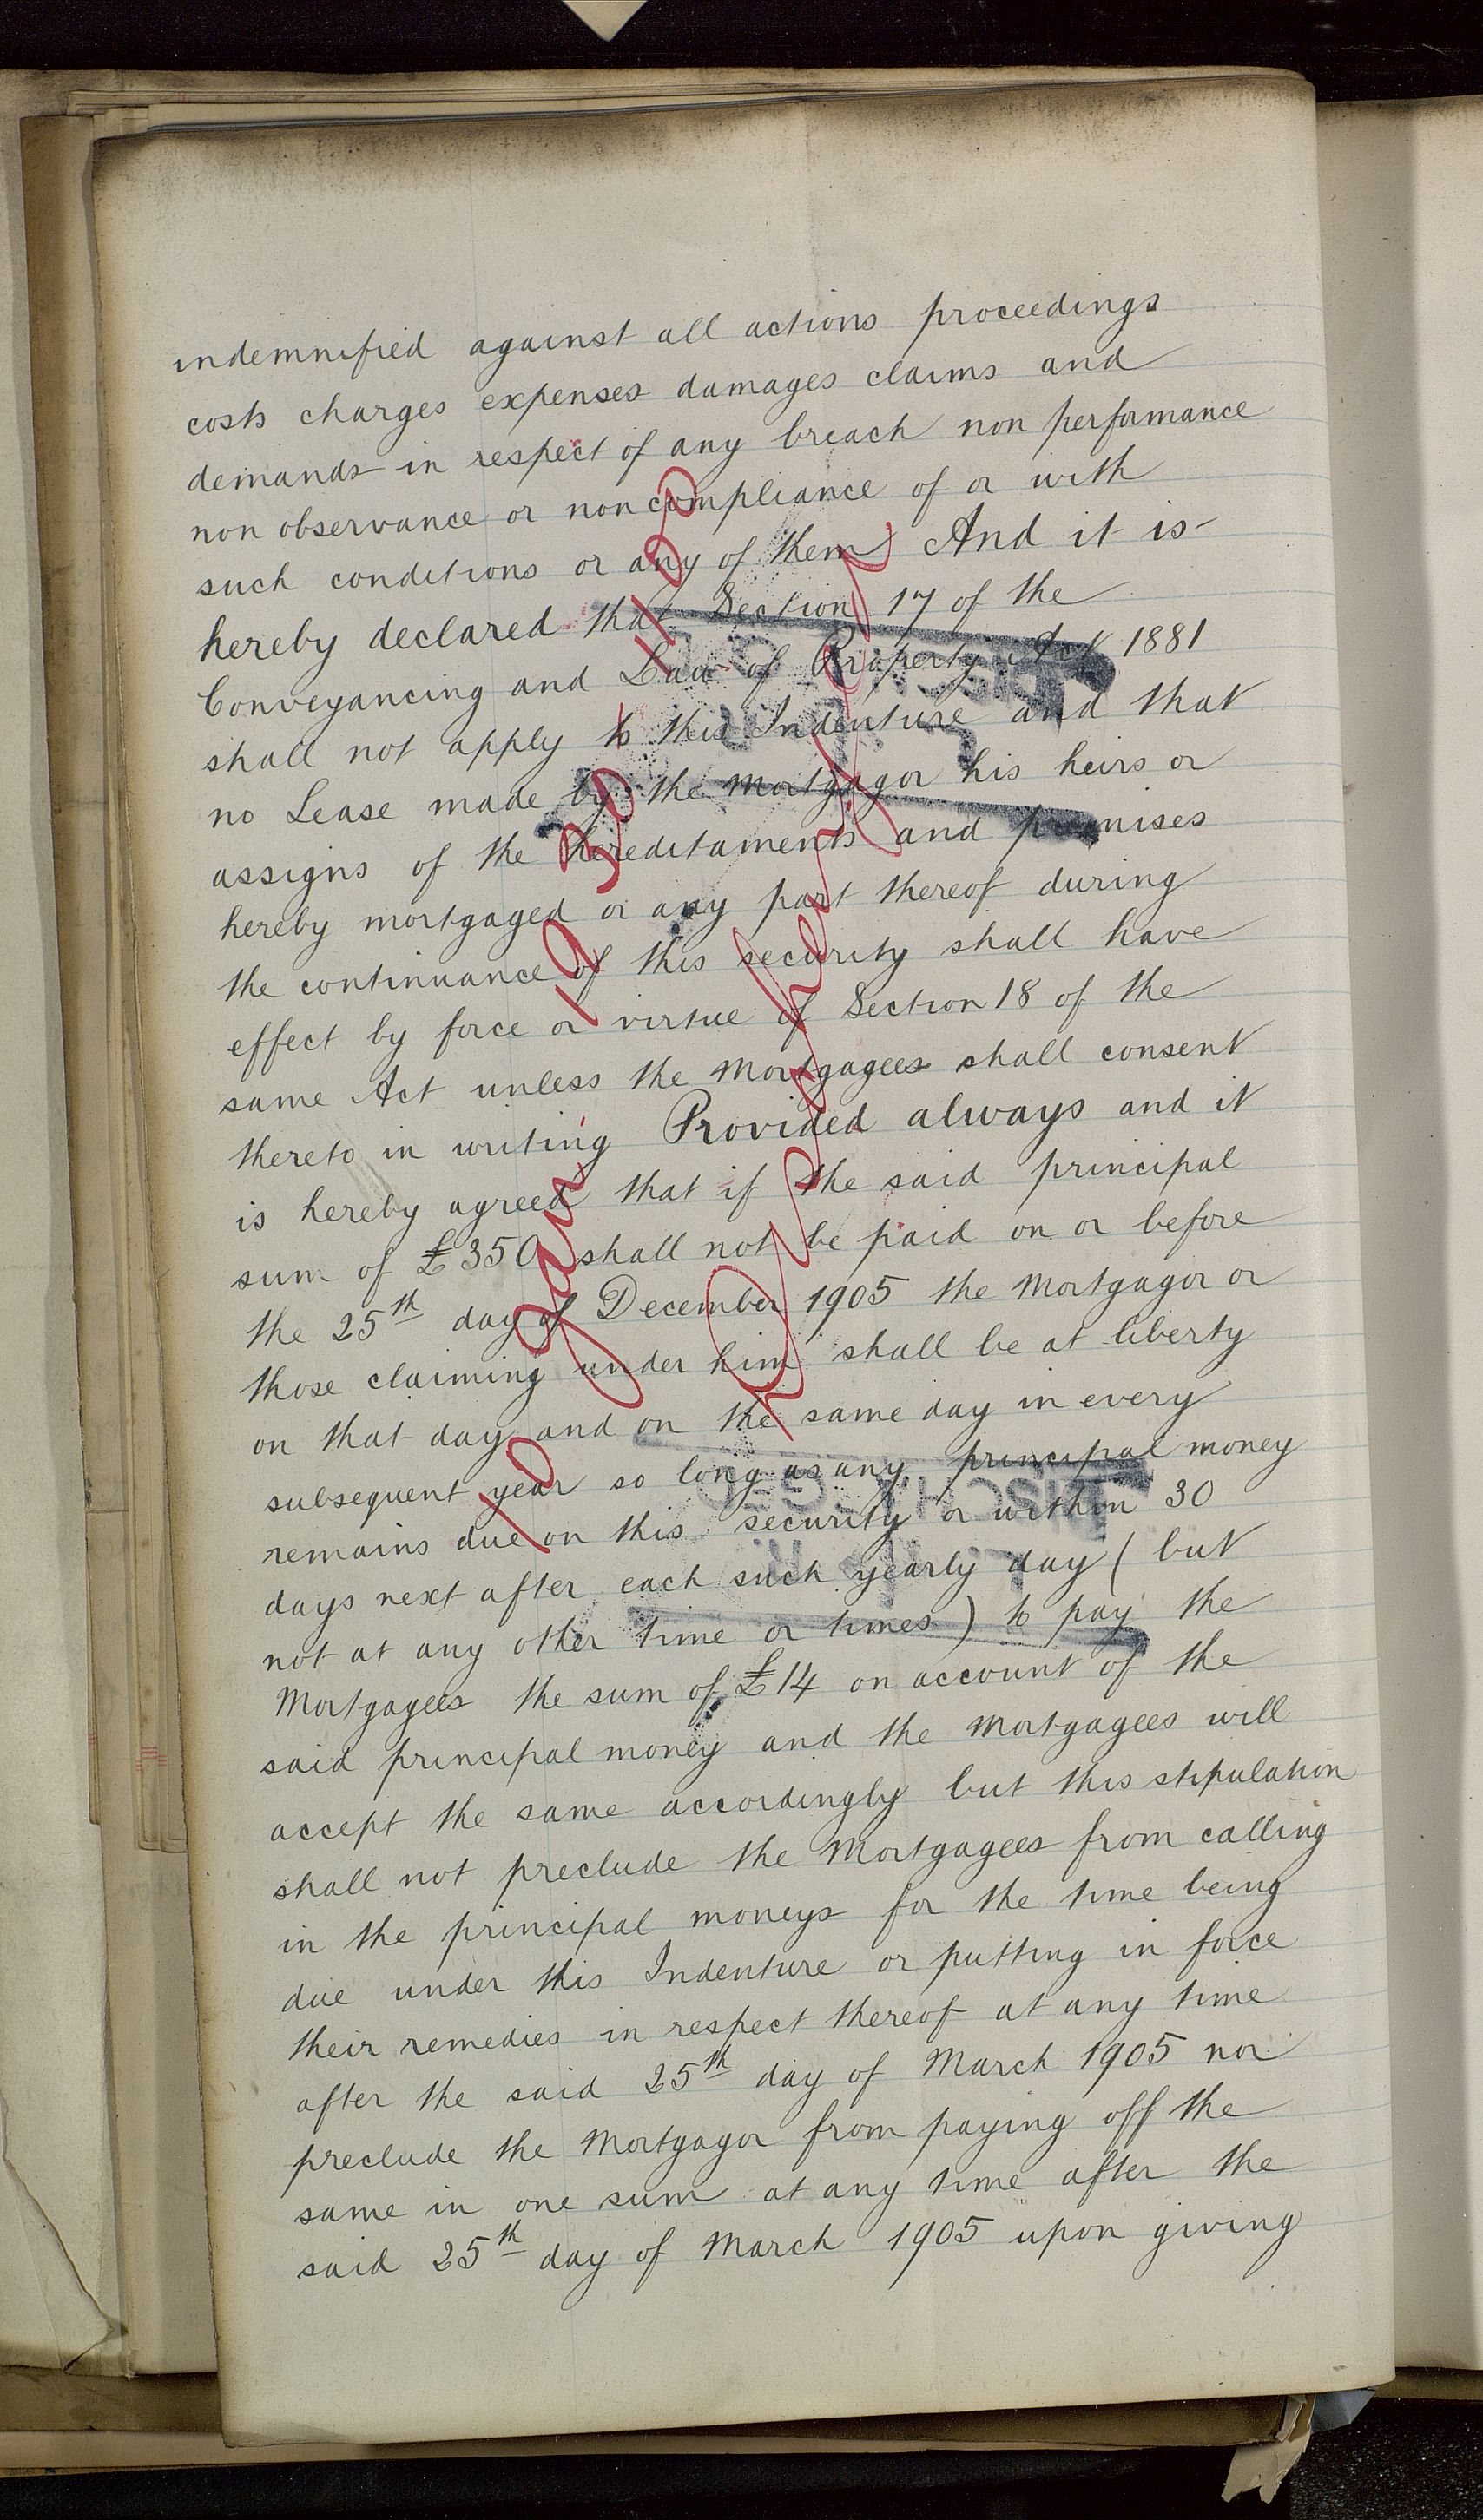 indemnified against all actions proceedings
costs charges expenses damages claims and
demands in respect of any breach non performance
non observance or non compliance of or with
such conditions or any of them And it is
hereby declared that Section 17 of the
Conveyancing and Law of Property Act 1881
shall not apply to this Indenture and that
no Lease made by the Mortgagor his heirs or
assigns of the hereditaments and premises
hereby mortgaged or any part thereof during
the continuance of this security shall have
effect by force or virtue of Section 18 of the
same Act unless the Mortgagees shall consent
thereto in writing Provided always and it
is hereby agreed that if the said principal
sum of £350 shall not be paid on or before
the 25th day of December 1905 the Mortgagor or
those claiming under him shall be at liberty
on that day and on the same day in every
subsequent year so long as any principal money
remains due on this security or within 30
days next after each such yearly day (but
not at any other time or times) to pay the
Mortgagees the sum of £14 on account of the
said principal money and the Mortgagees will
accept the same accordingly but this stipulation
shall not preclude the Mortgagees from calling
in the principal moneys for the time being
due under this Indenture or putting in force
their remedies in respect thereof at any time
after the said 25th day of March 1905 nor
preclude the Mortgagor from paying off the
same in one sum at any time after the
said 25th day of March 1905 upon giving
DISCHARGED